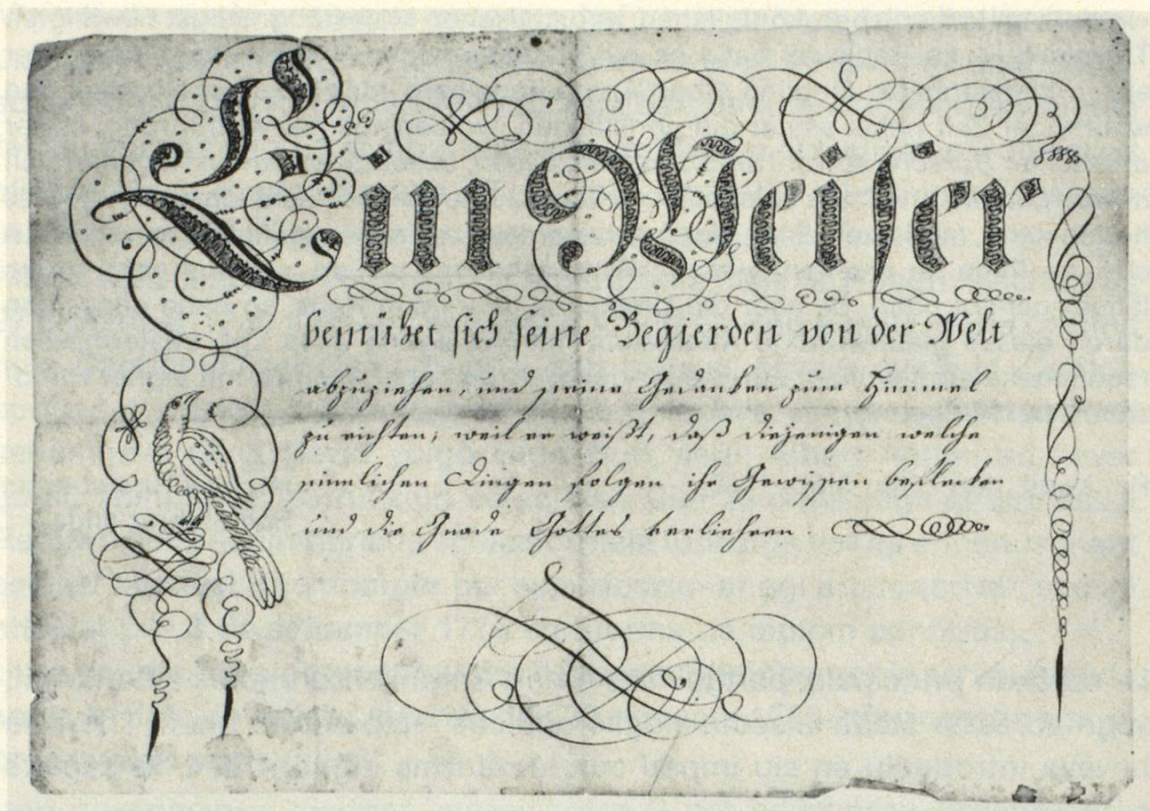 Ein Weiser
bemühet sich seine Begierden von der Welt
abzuziehen, und seine Gedanken zum Himmel
zu richten, weil er weißt, daß diejenigen welche
sinnlichen Dingen folgen ihr Gewissen beflecken
und die Gnade Gottes verliehren.